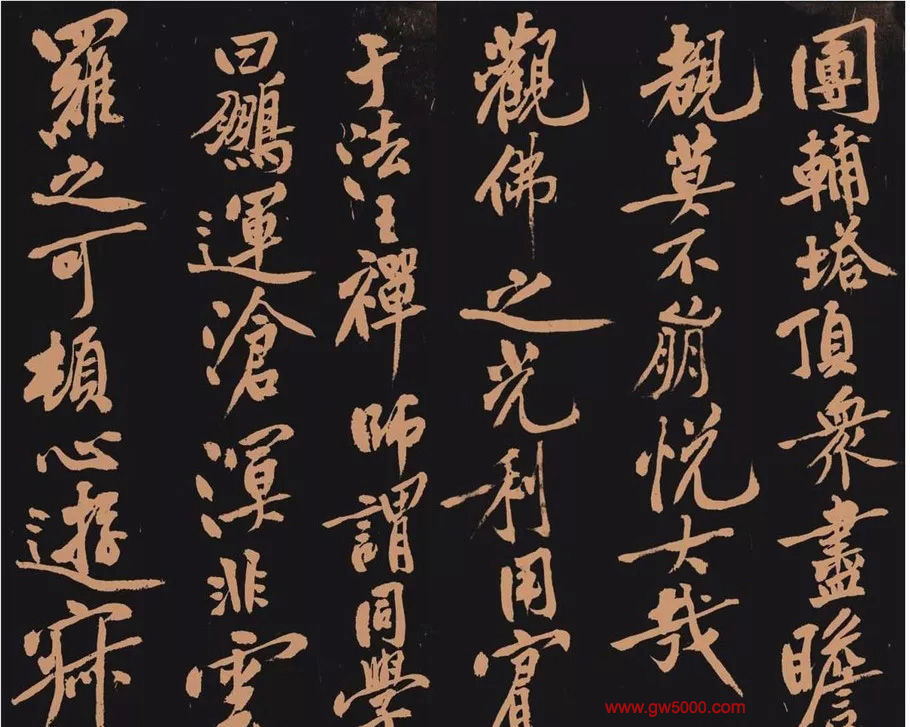 團輔塔頂衆盡瞻
覩莫不崩悅大哉
觀佛之光利用賓
于法王禪師謂同學
曰鵬運滄溟非雲
羅之可頓心遊寂
www.gw5000.com